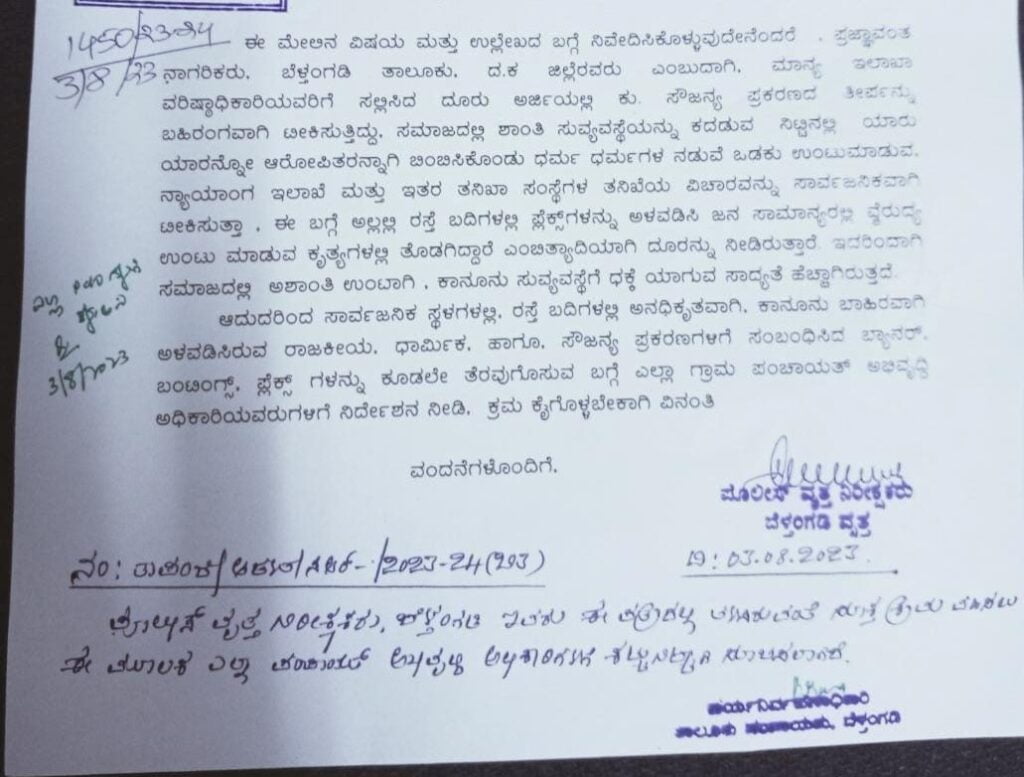 1450/23-24
3/8/23
ಈ ಮೇಲಿನ ವಿಷಯ ಮತ್ತು ಉಲ್ಲೇಖದ ಬಗ್ಗೆ ನಿವೇದಿಸಿಕೊಳ್ಳುವುದೇನೆಂದರೆ . ಪ್ರಜ್ಞಾವಂತ
ನಾಗರಿಕರು, ಬೆಳ್ತಂಗಡಿ ತಾಲೂಕು, ದ.ಕ ಜಿಲ್ಲೆರವರು ಎಂಬುದಾಗಿ, ಮಾನ್ಯ ಇಲಾಖಾ
ವರಿಷ್ಠಾಧಿಕಾರಿಯವರಿಗೆ ಸಲ್ಲಿಸಿದ ದೂರು ಅರ್ಜಿಯಲ್ಲಿ ಕು. ಸೌಜನ್ಯ ಪ್ರಕರಣದ ತೀರ್ಪನ್ನು
ಬಹಿರಂಗವಾಗಿ ಟೀಕಿಸುತ್ತಿದ್ದು, ಸಮಾಜದಲ್ಲಿ ಶಾಂತಿ ಸುವ್ಯವಸ್ಥೆಯನ್ನು ಕದಡುವ ನಿಟ್ಟಿನಲ್ಲಿ ಯಾರು
ಯಾರನ್ನೋ ಆರೋಪಿತರನ್ನಾಗಿ ಬಿಂಬಿಸಿಕೊಂಡು ಧರ್ಮ ಧರ್ಮಗಳ ನಡುವೆ ಒಡಕು ಉಂಟುಮಾಡುವ,
ನ್ಯಾಯಾಂಗ ಇಲಾಖೆ ಮತ್ತು ಇತರ ತನಿಖಾ ಸಂಸ್ಥೆಗಳ ತನಿಖೆಯ ವಿಚಾರವನ್ನು ಸಾರ್ವಜನಿಕವಾಗಿ
ಟೀಕಿಸುತ್ತಾ , ಈ ಬಗ್ಗೆ ಅಲ್ಲಲ್ಲಿ ರಸ್ತೆ ಬದಿಗಳಲ್ಲಿ ಫ್ಲೆಕ್ಸ್‌ಗಳನ್ನು ಅಳವಡಿಸಿ ಜನ ಸಾಮಾನ್ಯರಲ್ಲಿ ವೈರುದ್ಯ
ಉಂಟು ಮಾಡುವ ಕೃತ್ಯಗಳಲ್ಲಿ ತೊಡಗಿದ್ದಾರೆ ಎಂಬಿತ್ಯಾದಿಯಾಗಿ ದೂರನ್ನು ನೀಡಿರುತ್ತಾರೆ. ಇದರಿಂದಾಗಿ
ಸಮಾಜದಲ್ಲಿ ಅಶಾಂತಿ ಉಂಟಾಗಿ , ಕಾನೂನು ಸುವ್ಯವಸ್ಥೆಗೆ ಧಕ್ಕೆ ಯಾಗುವ ಸಾದ್ಯತೆ ಹೆಚ್ಚಾಗಿರುತ್ತದೆ.
ಆದುದರಿಂದ ಸಾರ್ವಜನಿಕ ಸ್ಥಳಗಳಲ್ಲಿ, ರಸ್ತೆ ಬದಿಗಳಲ್ಲಿ ಅನಧಿಕೃತವಾಗಿ, ಕಾನೂನು ಬಾಹಿರವಾಗಿ
ಅಳವಡಿಸಿರುವ ರಾಜಕೀಯ, ಧಾರ್ಮಿಕ, ಹಾಗೂ, ಸೌಜನ್ಯ ಪ್ರಕರಣಗಳಿಗೆ ಸಂಬಂಧಿಸಿದ ಬ್ಯಾನರ್,
ಬಂಟಿಂಗ್ಸ್, ಫ್ಲೆಕ್ಸ್ ಗಳನ್ನು ಕೂಡಲೇ ತೆರವುಗೊಸುವ ಬಗ್ಗೆ ಎಲ್ಲಾ ಗ್ರಾಮ ಪಂಚಾಯತ್ ಅಭಿವೃದ್ಧಿ
ಅಧಿಕಾರಿಯವರುಗಳಿಗೆ ನಿರ್ದೇಶನ ನೀಡಿ, ಕ್ರಮ ಕೈಗೊಳ್ಳಬೇಕಾಗಿ ವಿನಂತಿ
3/8/2023
ವಂದನೆಗಳೊಂದಿಗೆ,
ಪೊಲೀಸ್ ವೃತ್ತ ನಿರೀಕ್ಷಕರು
ಬೆಳ್ತಂಗಡಿ ವೃತ್ತ
ನಂ: /2023-24(203)
ದಿ: 03.08.2023.
ಪೊಲೀಸ್ ವೃತ್ತ ನಿರೀಕ್ಷಕರು, ಬೆಳ್ತಂಗಡಿ ಇವರು ಈ ಪತ್ರದಲ್ಲಿ ಸೂಕ್ತ ಕ್ರಮ
ಈ ಮೂಲಕ ಎಲ್ಲಾ ಪಂಚಾಯತ್ ಅಭಿವೃದ್ಧಿ ಅಧಿಕಾರಿಗಳಿಗೆ ಕಟ್ಟುನಿಟ್ಟಾಗಿ ಸೂಚಿಸಲಾಗಿದೆ.
ಕಾರ್ಯನಿರ್ವಹಣಾಧಿಕಾರಿ
ತಾಲೂಕು ಪಂಚಾಯತು, ಬೆಳ್ತಂಗಡಿ